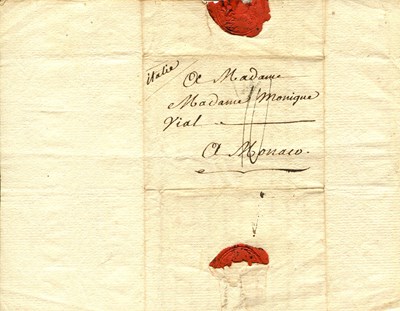 italie
A Madame
Madame Monique
Vial
A Monaco.